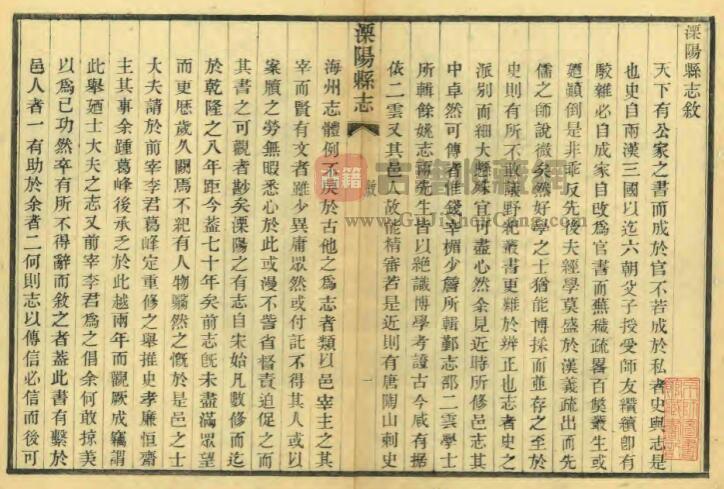 溧陽縣志敘
天下有公家之書而成於官不若成於私者史與志是
也史自兩漢三國以迄六朝父子授受師友纘續卽有
駁雜必自成家自改爲官書而蕪穢疏畧百獘叢生或
顚倒是非乖反先後夫經學莫盛於漢義疏出而先
儒之師說微矣然好學之士猶能博採而並存之至於
史則有所不敢議野乘叢書更難於辨正也志者史之
派別而細大懸殊宜可盡心然余見近時所修邑志其
中卓然可傳者惟錢辛楣少詹所輯鄞志邵二雲學士
所輯餘姚志兩先生皆以絶識博學考證古今咸有據
依二雲又其邑人故能精審若是近則有唐陶山刺史
溧陽縣志
敘
一
海州志體例不戾於古他之爲志者類以邑宰主之其
宰而賢有文者雖少異庸眾然或付託不得其人或以
案牘之勞無暇悉心於此或漫不訾省督責迫促之而
其書之可觀者尠矣溧陽之有志自宋始凡數修而迄
於乾隆之八年距今蓋七十年矣前志旣未盡滿眾望
而更歷歲久闕焉不紀有人物翳然之慨於是邑之士
大夫請於前宰李君葛峰定重修之舉推史孝廉恒齋
主其事余踵葛峰後承乏於此越兩年而觀厥成竊謂
此舉廼士大夫之志又前宰李君爲之倡余何敢掠美
以爲已功然卒有所不得辭而敘之者蓋此書有繫於
邑人者一有助於余者二何則志以傳信必信而後可
古籍收藏網
www.GuJiShouCang.com